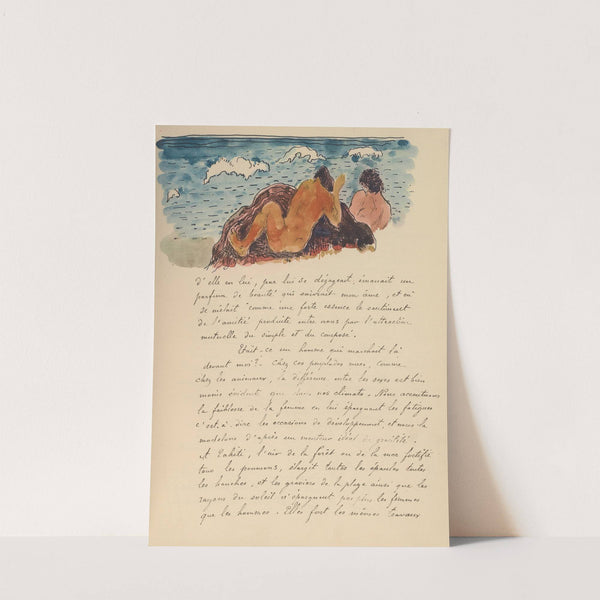 d'elle en lui, par lui se dégageait, émanait un
parfum de beauté qui enivrait mon âme, et où
se mêlait comme une forte essence le sentiment
de l'amitié produite entre nous par l'attraction
mutuelle du simple et du composé.
Était-ce un homme qui marchait là
devant moi? - Chez ces peuplades nues, comme
chez les animaux, la différence entre les sexes est bien
moins évidente que dans nos climats. Nous accentuons
la faiblesse de la femme en lui épargnant les fatigues
c'est à dire les occasions de développement, et nous la
modelons d'après un menteur idéal de gracilité.
A Tahiti, l'air de la forêt ou de la mer fortifie
tous les poumons, élargit toutes les épaules toutes
les hanches, et les graviers de la plage ainsi que les
rayons du soleil n'épargnent pas plus les femmes
que les hommes. Elles font les mêmes travaux